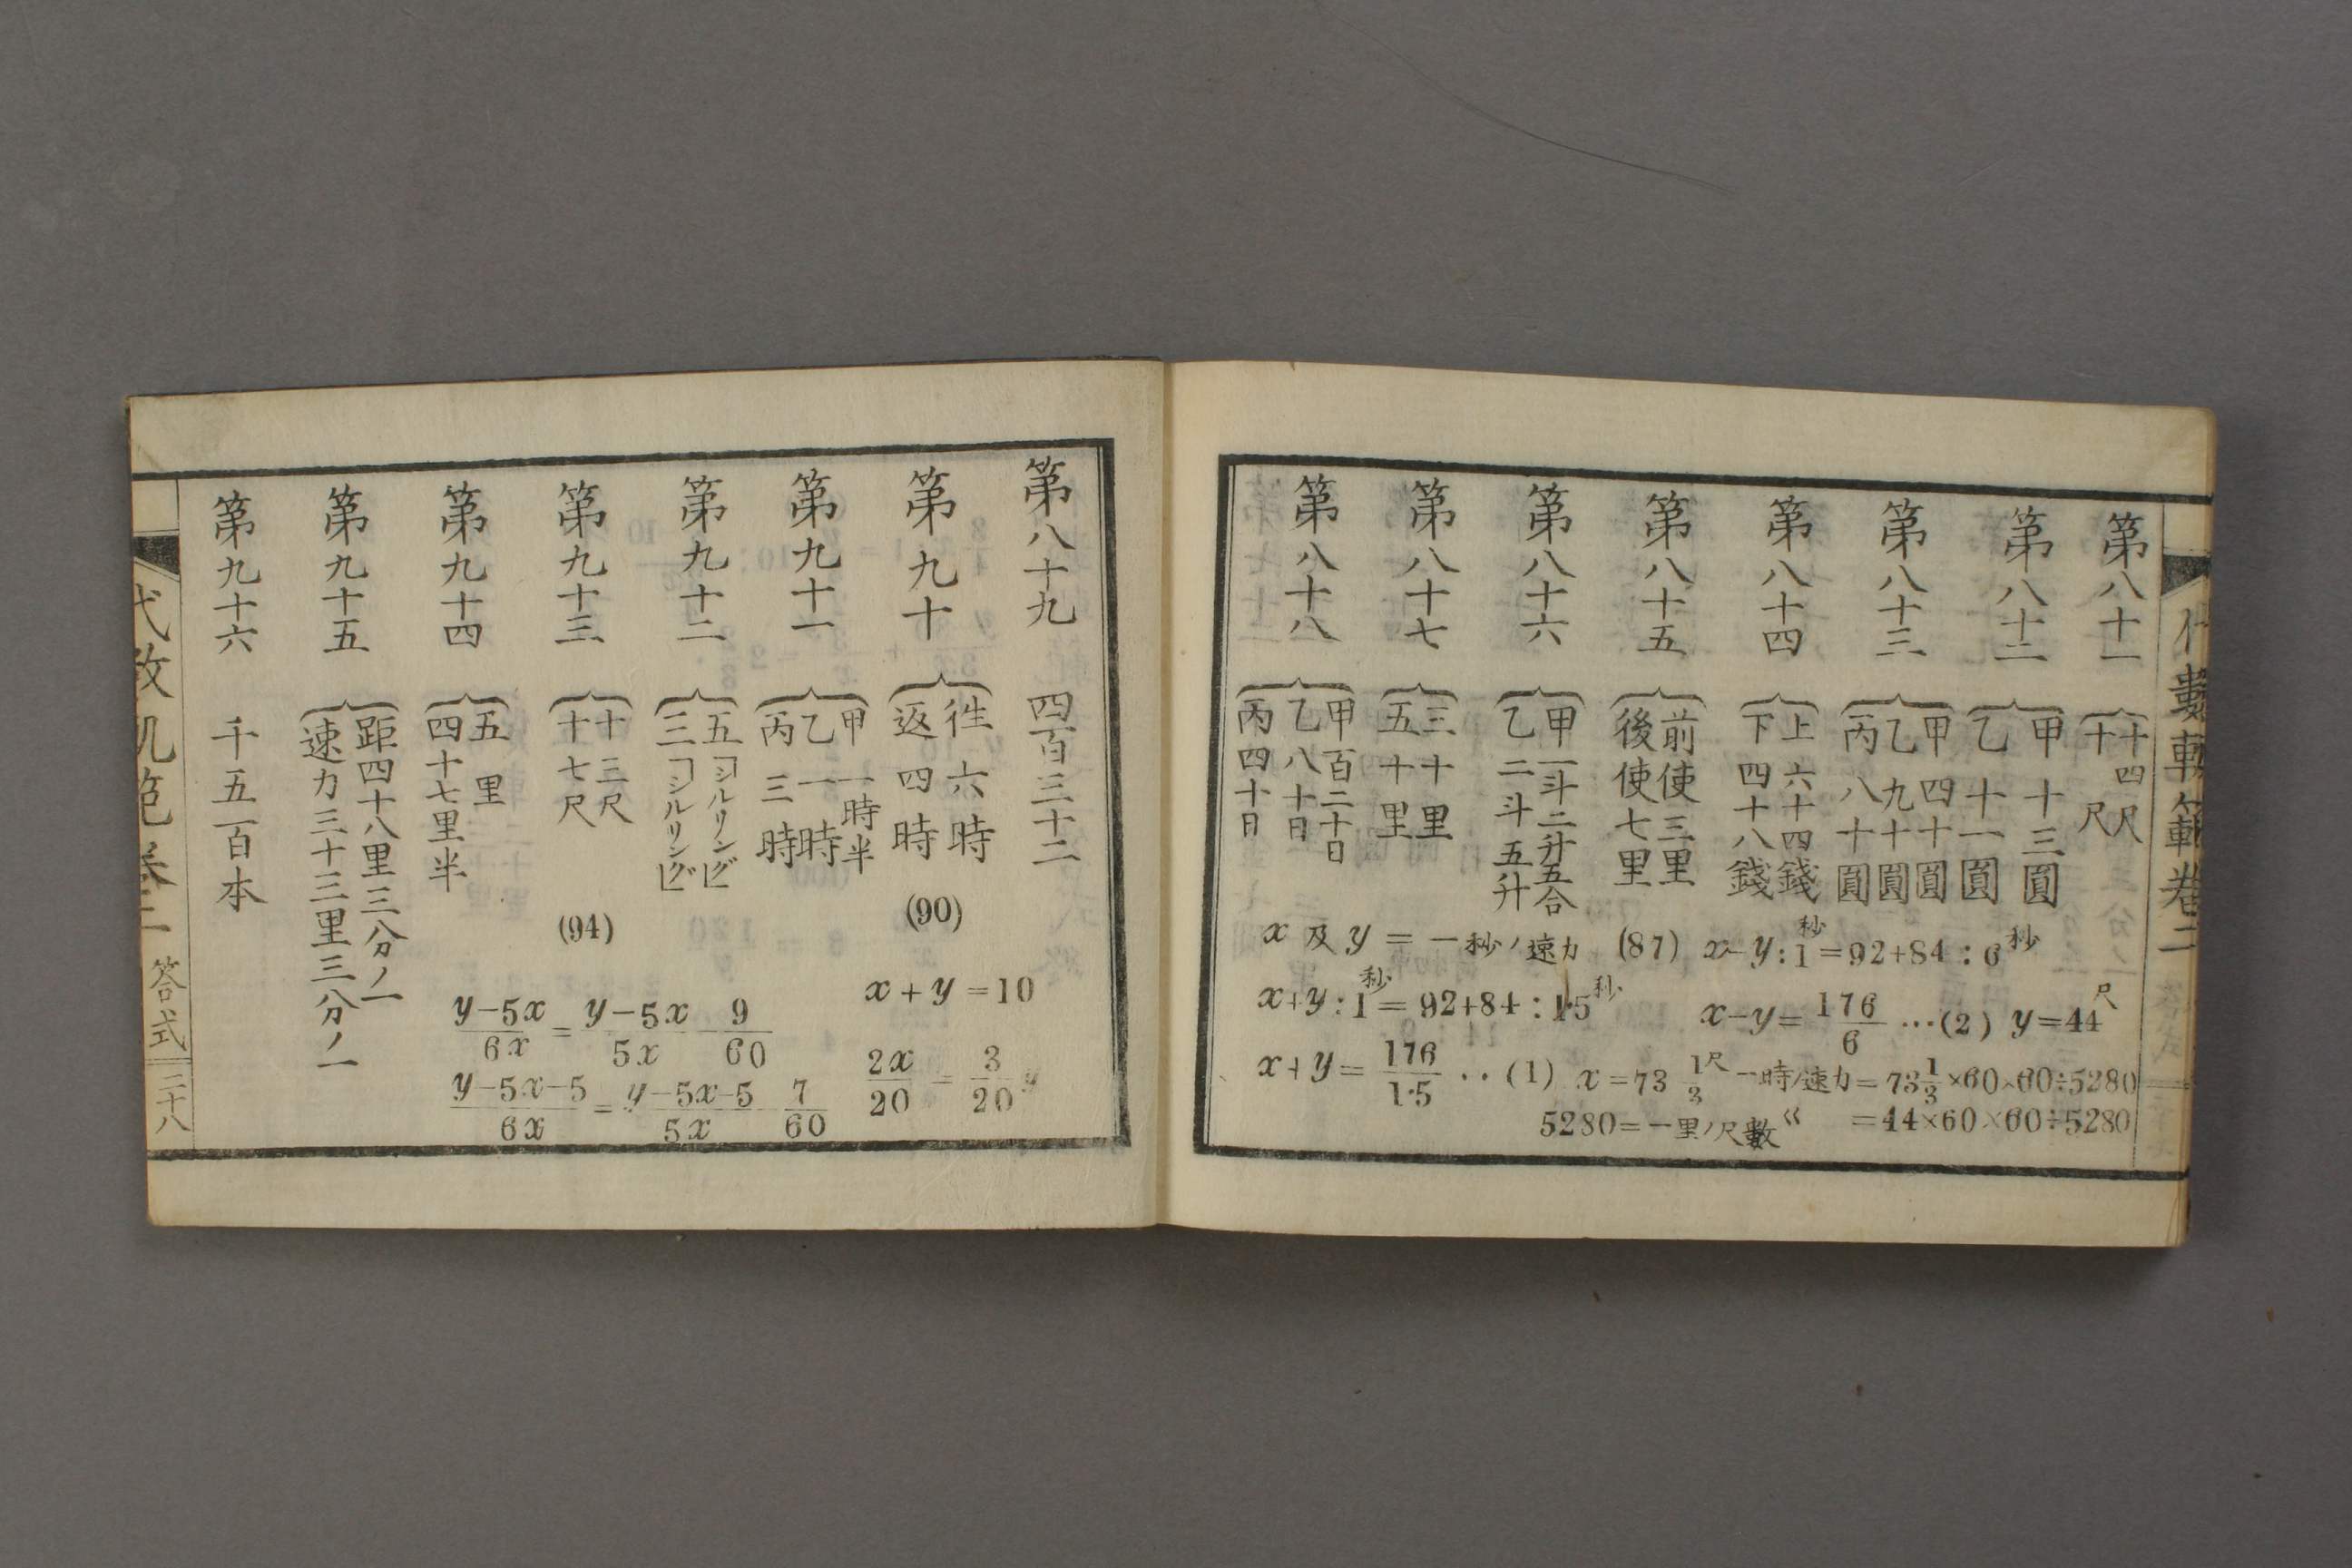 第八十一
十四尺
十尺
第八十二
甲十三圓
乙十一圓
第八十三
甲四十圓
乙九十圓
丙八十圓
第八十四
上六十四錢
下四十八錢
第八十五
前使三里
後使七里
第八十六
甲一斗二升五合
乙二斗五升
第八十七
三十里
五十里
第八十八
甲百二十日
乙八十日
丙四十日
x及y=一秒ノ速力 (87) x-y:1秒=92+84:6秒
x+y:1秒=92+84:1·5秒
x-y=176/6…(2) y=44尺
x+y=176/1·5‥(1) x=73 1/3尺 一時ノ速力=73 1/3×60×60÷5280
5280=一里ノ尺數 〃 =44×60×60÷5280
第八十九 四百三十二
第九十
徃六時
返四時
第九十一
甲一時半
乙一時
丙三時
第九十二
五「シルリング」
三「シルリング」
第九十三
十三尺
十七尺
第九十四
五里
四十七里半
第九十五
距四十八里三分ノ一
速力三十三里三分ノ一
第九十六 千五百本
(90)
x+y=10
2x/20=3/20y
(94)
y-5x/6x=y-5x/5x-9/60
y-5x-5/6x=y-5x-5/5x 7/60
答式
三十八